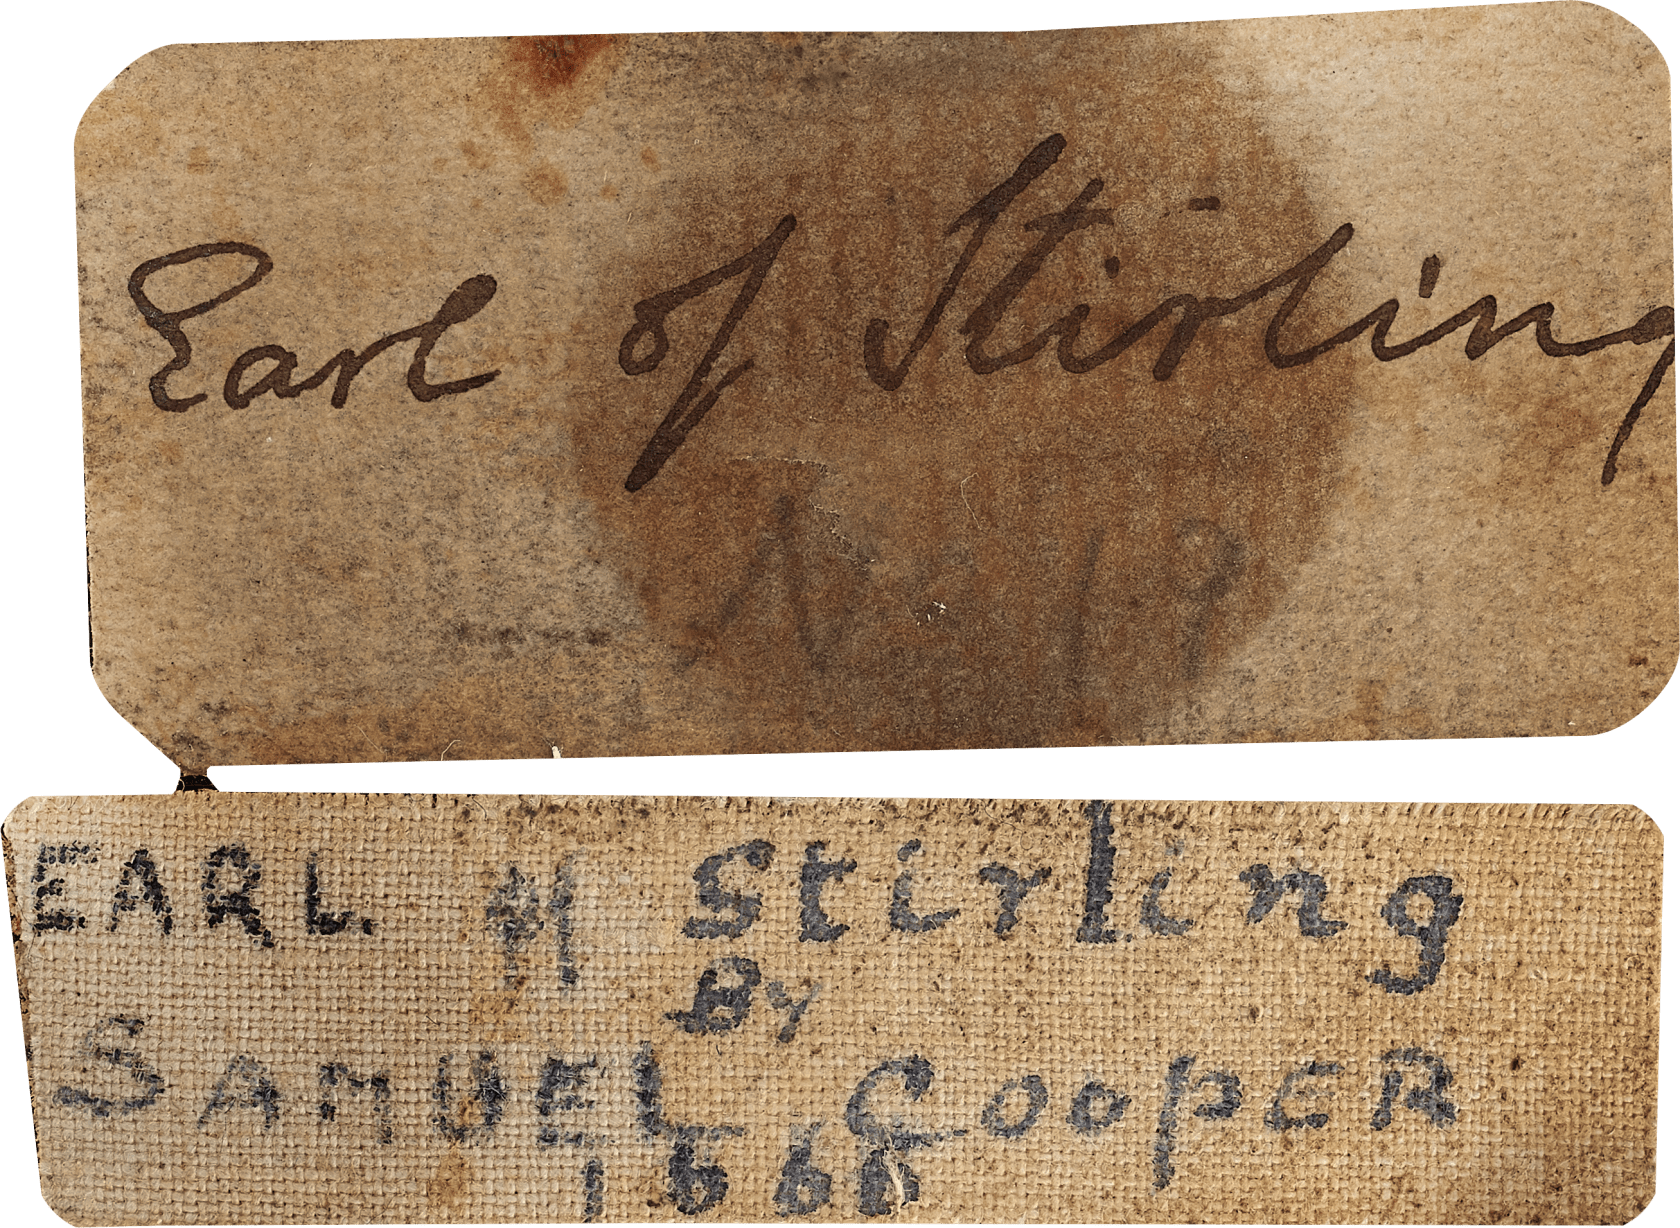 Earl of Stirling
No 19
EARL H Stirling
By
SAMUEL COOPER
1666